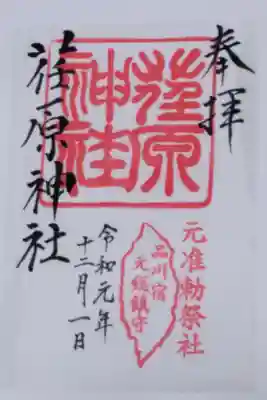 奉拝
元准勅祭社
荏原神社
品川宿
元総鎮守
令和元年
十二月一日
荏原神社